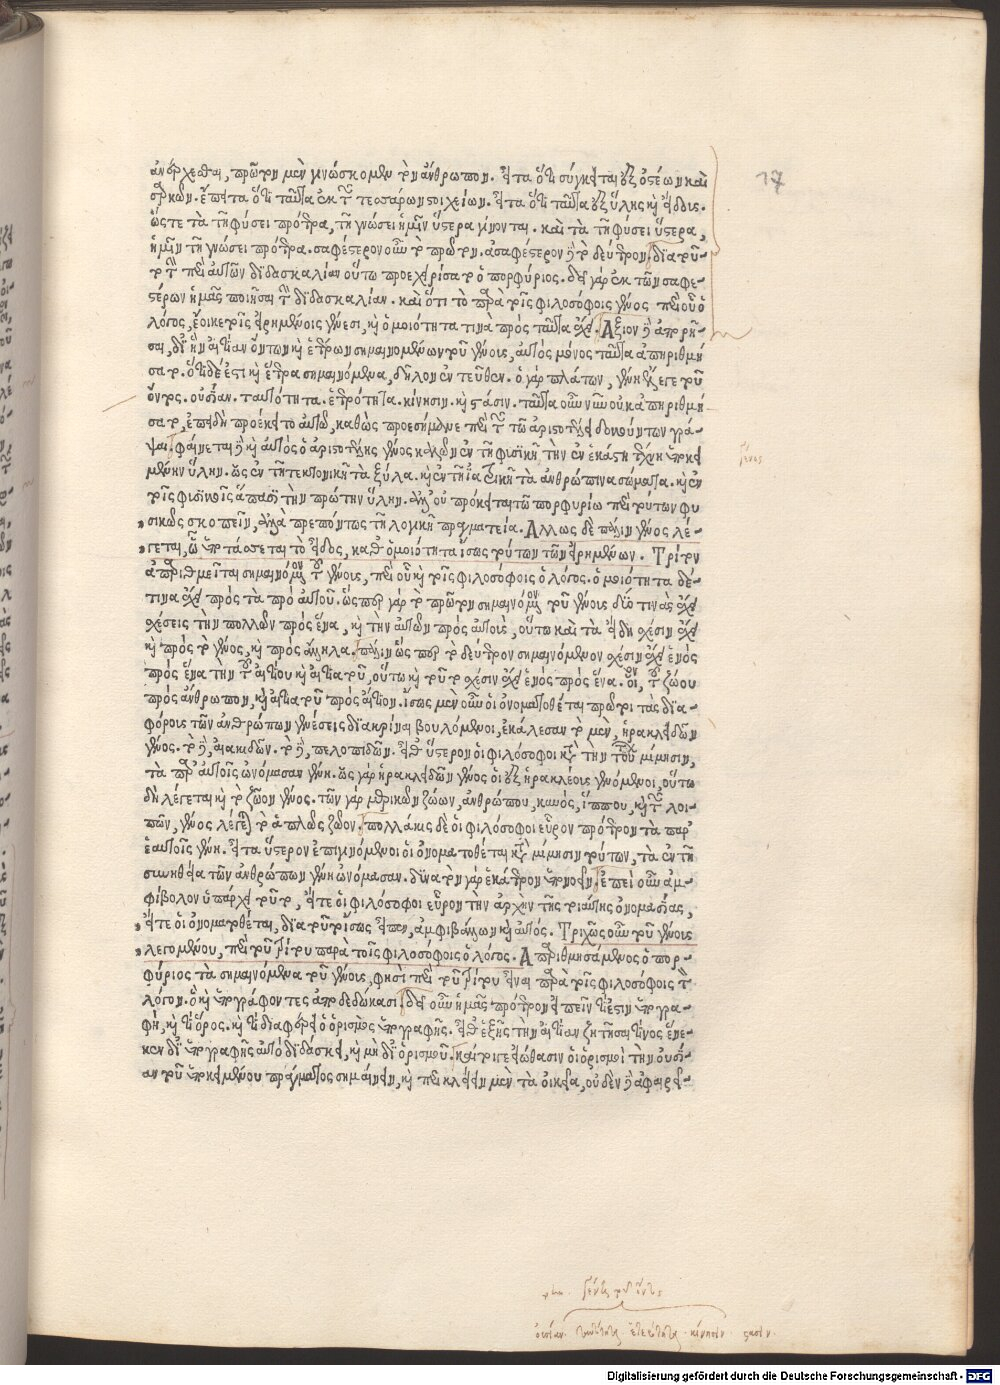 ἀνέρχεσθαι, πρῶτον μὲν γινώσκομεν τὸν ἄνθρωπον. εἶτα ὅτι σύγκειται ἐξ ὀστέων καὶ
17
σαρκῶν. ἔπειτα ὅτι ταῦτα ἐκ τῶν τεσσάρων στοιχείων. εἶτα ὅτι ταῦτα ἐξ ὕλης καὶ εἴδους.
ὥστε τὰ τῇ φύσει πρότερα, τῇ γνώσει ἡμῖν ὕστερα γίνονται. καὶ τὰ τῇ φύσει ὕστερα,
ἡμῖν τῇ γνώσει πρότερα. σαφέστερον οὖν τὸ πρῶτον. ἀσαφέστερον δὲ τὸ δεύτερον. διὰ τοῦ-
το τὴν περὶ αὐτῶν διδασκαλίαν οὕτω προεχειρίσατο ὁ πορφύριος. δεῖ γὰρ ἐκ τῶν σαφε-
στέρων ἡμᾶς ποιῆσαι τὴν διδασκαλίαν. καὶ ὅτι τὸ παρὰ τοῖς φιλοσόφοις γένος περὶ οὗ ὁ
λόγος, ἔοικε τοῖς εἰρημένοις γένεσι, καὶ ὁμοιότητα τινὰ πρὸς ταῦτα ἔχει. Ἄξιον δὲ ἀπορῆ-
σαι, δι' ἣν αἰτίαν ὄντων καὶ ἑτέρων σημαινομένων τοῦ γένους, αὐτὸς μόνος ταῦτα ἀπηριθμή
σατο. ὅτι δέ ἐστι καὶ ἕτερα σημαινόμενα, δῆλον ἐντεῦθεν. ὁ γὰρ πλάτων, γένη ἔλεγε τοῦ
ὄντος. οὐσίαν. ταυτότητα. ἑτερότητα. κίνησιν. καὶ στάσιν. ταῦτα οὖν νῦν οὐκ ἀπηριθμή
σατο, ἐπειδὴ προέκειτο αὐτῷ, καθὼς προεσήμανε περὶ τῶν τῷ ἀριστοτέλει δοκούντων γρά-
ψαι. φαίνεται δὲ καὶ αὐτὸς ὁ ἀριστοτέλης γένος καλῶν ἐν τῇ φυσικῇ, τὴν ἐν ἑκάστῃ τέχνῃ ὑποκει
γένος
μένην ὕλην. ὡς ἐν τῇ τεκτονικῇ τὰ ξύλα. καὶ ἐν τῇ ἰατρικῇ τὰ ἀνθρώπινα σώματα. καὶ ἐν
τοῖς φυσικοῖς ἅπασι τὴν πρώτην ὕλην. ἀλλ' οὐ πρόκειται τῷ πορφυρίῳ περὶ τούτων φυ
σικῶς σκοπεῖν, ἀλλὰ πρεπόντως τῇ λογικῇ πραγματείᾳ. Ἄλλως δὲ πάλιν γένος λέ-
γεται, ᾧ ὑποτάσσεται τὸ εἶδος, καθ' ὁμοιότητα ἴσως τούτων τῶν εἰρημένων. Τρίτον
ἀπαριθμεῖται σημαινόμενον τοῦ γένους, περὶ οὗ καὶ τοῖς φιλοσόφοις ὁ λόγος. ὁμοιότητα δέ-
τινα ἔχει πρὸς τὰ πρὸ αὐτοῦ. ὥσπερ γὰρ τὸ πρῶτον σημαινόμενον τοῦ γένους δύο τινὰς ἔχει
σχέσεις τὴν πολλῶν πρὸς ἕνα, καὶ τὴν αὐτῶν πρὸς αὐτούς, οὕτω καὶ τὰ εἴδη σχέσιν ἔχει
καὶ πρὸς τὸ γένος, καὶ πρὸς ἄλληλα. πάλιν ὥσπερ τὸ δεύτερον σημαινόμενον σχέσιν ἔχει ἑνὸς
πρὸς ἕνα τὴν τοῦ αἰτίου καὶ αἰτιατοῦ, οὕτω καὶ τοῦτο σχέσιν ἔχει ἑνὸς πρὸς ἕνα. οἷον, τοῦ ζώου
πρὸς ἄνθρωπον, καὶ αἰτιατοῦ πρὸς αἴτιον. ἴσως μὲν οὖν οἱ ὀνοματοθέται πρῶτοι τὰς δια-
φόρους τῶν ἀνθρώπων γενέσεις διακρῖναι βουλόμενοι, ἐκάλεσαν τὸ μὲν, ἡρακλειδῶν
γένος. τὸ δὲ, αἰακιδῶν. τὸ δὲ, πελοπιδῶν. εἶθ' ὕστερον οἱ φιλόσοφοι κατὰ τὴν τούτων μίμησιν,
τὰ παρ' αὐτοῖς ὠνόμασαν γένη. ὡς γὰρ ἡρακλειδῶν γένος οἱ ἐξ ἡρακλέους γενόμενοι, οὕτω
δὴ λέγεται καὶ τὸ ζῶον γένος. τῶν γὰρ μερικῶν ζώων, ἀνθρώπου, κυνός, ἵππου, καὶ τῶν λοι-
πῶν, γένος λέγεται τὸ ἁπλῶς ζῶον. πολλάκις δὲ οἱ φιλόσοφοι εὗρον πρότερον τὰ παρ'
ἑαυτοῖς γένη. εἶτα ὕστερον ἐπιγενόμενοι οἱ ὀνοματοθέται κατὰ μίμησιν τούτων, τὰ ἐν τῇ
συνηθείᾳ τῶν ἀνθρώπων γένη ὠνόμασαν. δυνατὸν γὰρ ἑκάτερον ὑπονοεῖν. ἐπεὶ οὖν ἀμ-
φίβολον ὑπάρχει τοῦτο, εἴτε οἱ φιλόσοφοι εὗρον τὴν ἀρχὴν τῆς τοιαύτης ὀνομασίας,
εἴτε οἱ ὀνοματοθέται, διὰ τοῦτο ἴσως εἶπεν, ἀμφιβάλλων καὶ αὐτός. Τριχῶς οὖν τοῦ γένους
λεγομένου, περὶ τοῦ τρίτου παρὰ τοῖς φιλοσόφοις ὁ λόγος. Ἀπαριθμησάμενος ὁ πορ-
φύριος τὰ σημαινόμενα τοῦ γένους, φησὶ περὶ τοῦ τρίτου εἶναι παρὰ τοῖς φιλοσόφοις τὸν
λόγον. ὃ καὶ ὑπογράφοντες ἀποδεδώκασι. δεῖ οὖν ἡμᾶς πρότερον εἰπεῖν τί ἐστιν ὑπογρα-
φή, καὶ τί ὅρος. καὶ τί διαφέρει ὁ ὁρισμὸς ὑπογραφῆς. εἶθ' ἑξῆς τὴν αἰτίαν ζητῆσαι τίνος ἕνε-
κεν δι' ὑπογραφῆς αὐτὸ διδάσκει, καὶ μὴ δι' ὁρισμοῦ. καίτοι γε εἰώθασιν οἱ ὁρισμοὶ τὴν οὐσί-
αν τοῦ ὑποκειμένου πράγματος σημαίνειν, καὶ περικλείειν μὲν τὰ οἰκεῖα, οὐδὲν δὲ ἀφαιρεῖ-
γένη τοῦ ὄντος
οὐσίαν. ταυτότητα. ἑτερότητα. κίνησιν. στάσιν.
Digitalisierung gefördert durch die Deutsche Forschungsgemeinschaft - DFG